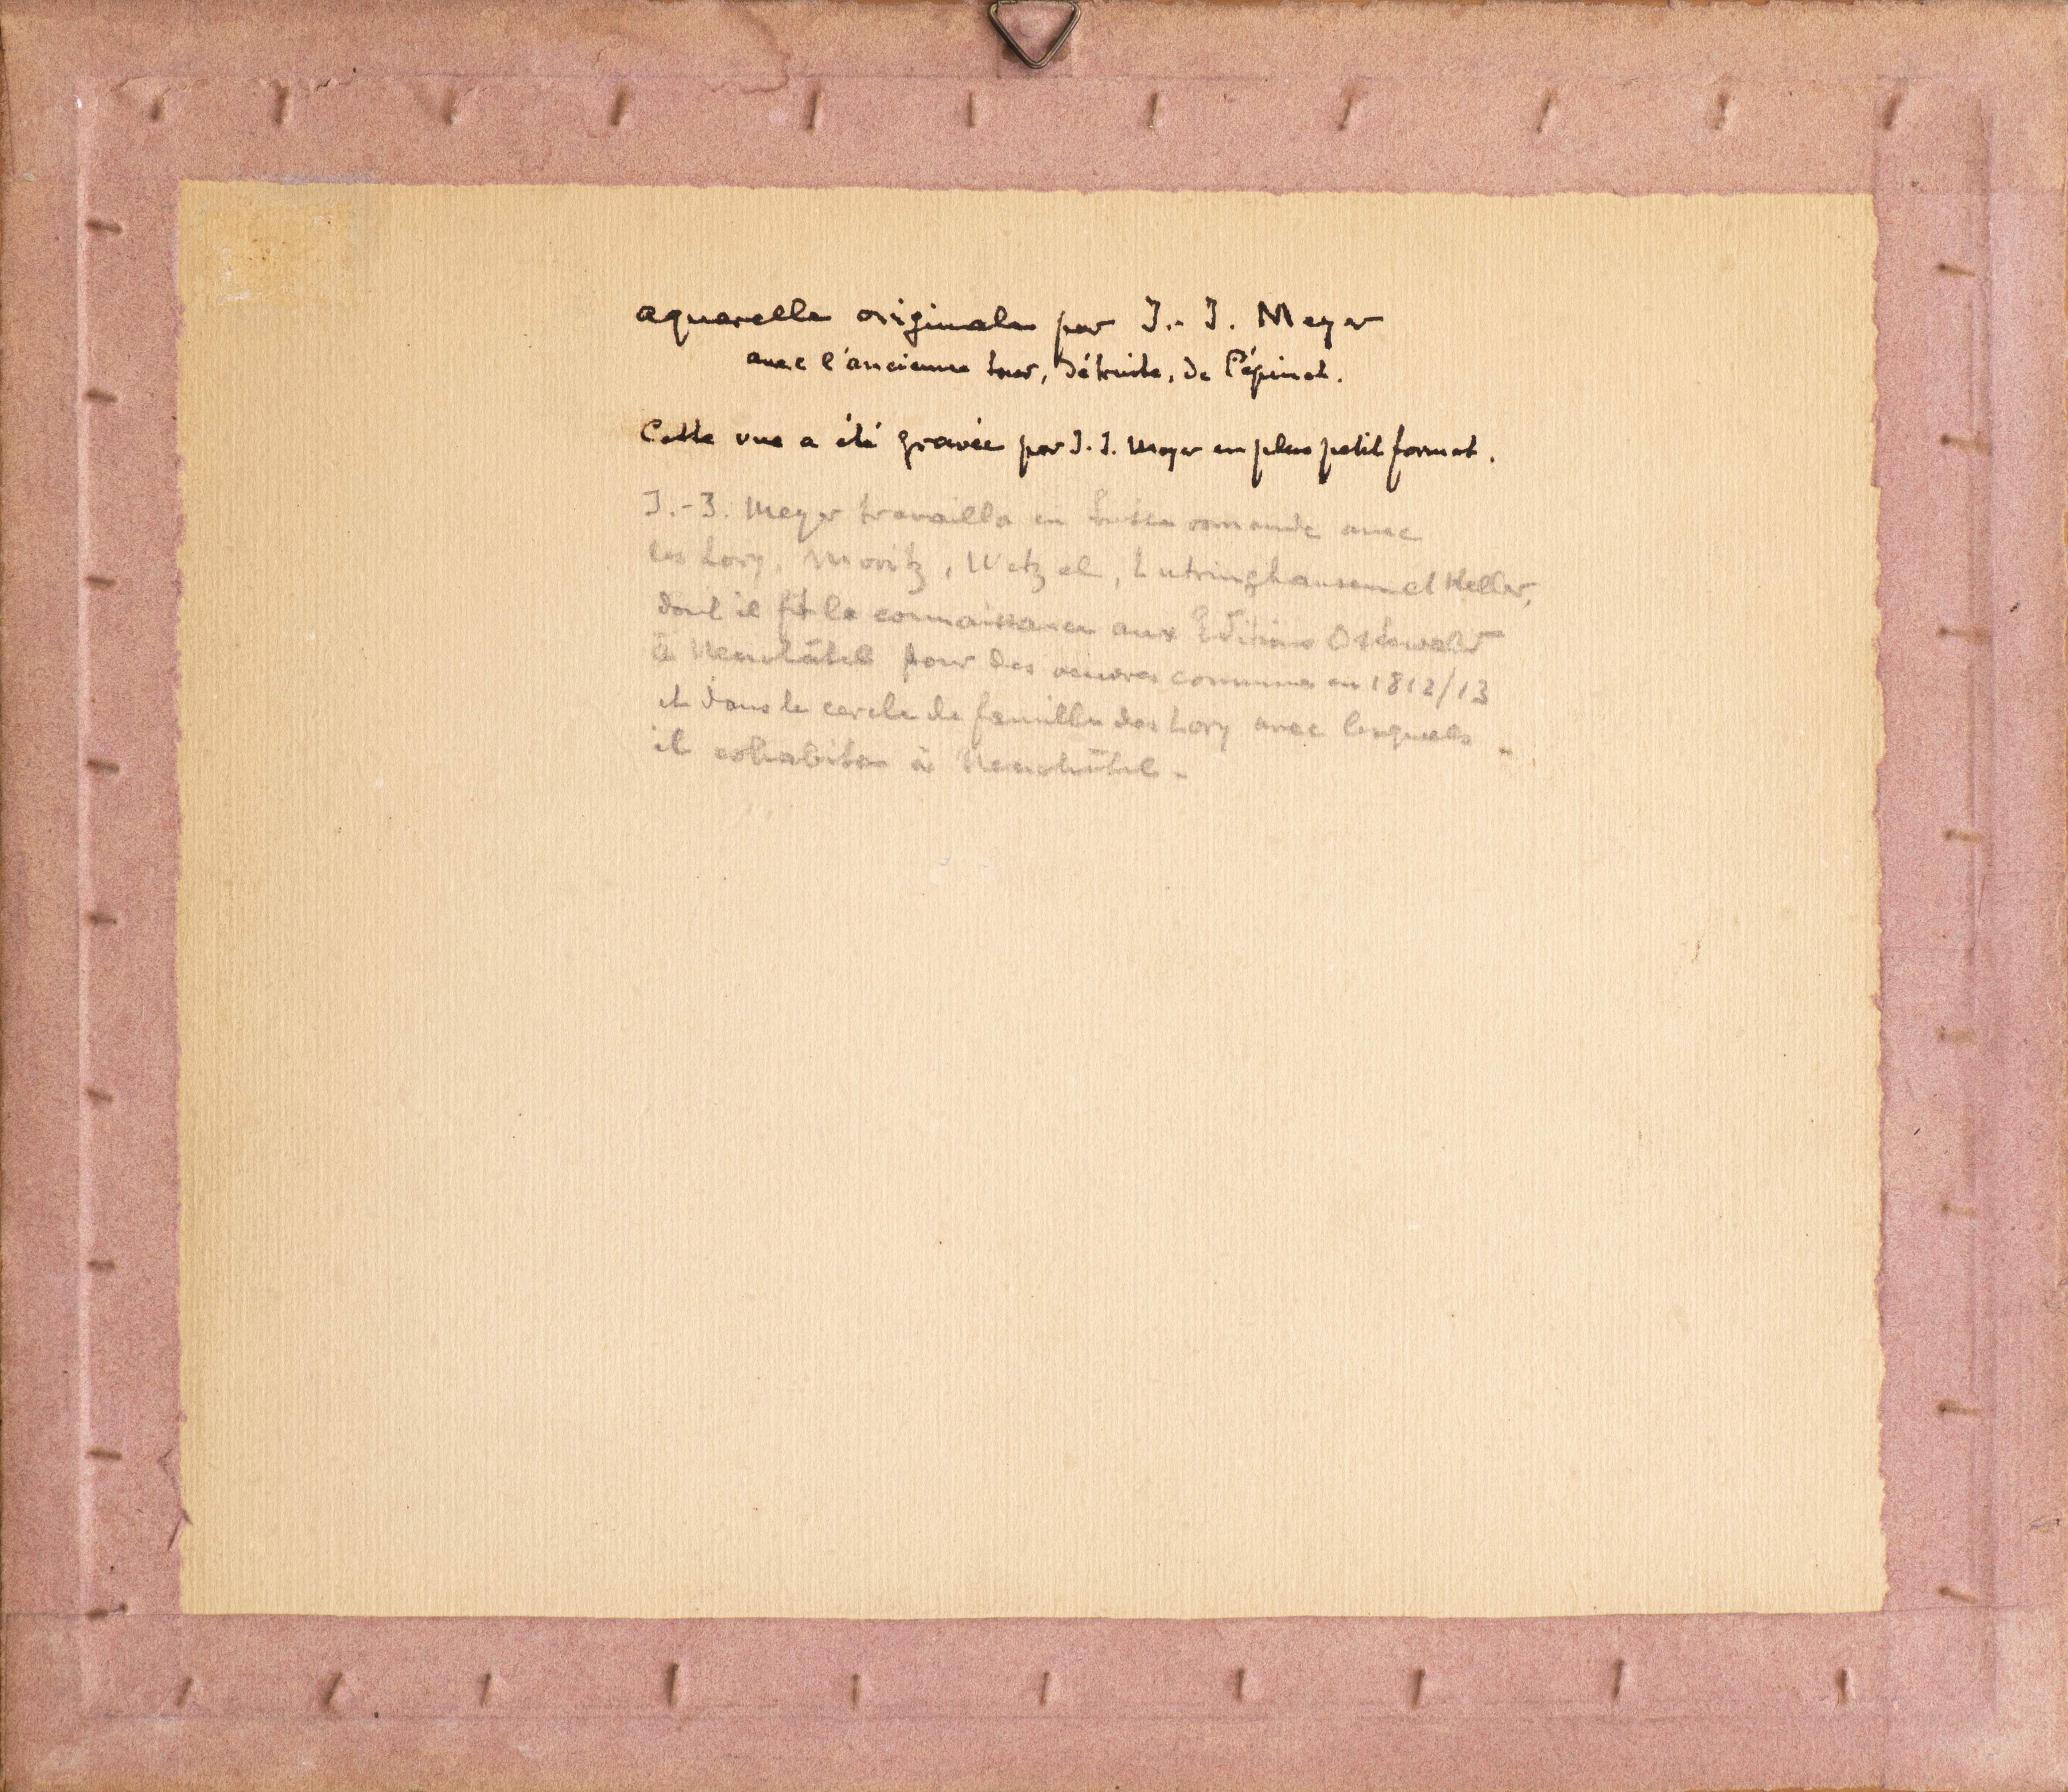 aquarelle originale par J.-J. Meyer
avec l'ancienne tour, détruite, de Pépinet.
Cette vue a été gravée par J.J. Meyer en plus petit format.
J.-J. Meyer travailla en Suisse romande avec
les Lory, Moritz, Wetzel, Lutringhausen et Keller,
dont il fit la connaissance aux Editions Ostewald
à Neuchâtel pour des oeuvres communes en 1812/13
et dans le cercle de famille des Lory avec lesquels
il cohabita à Neuchâtel.